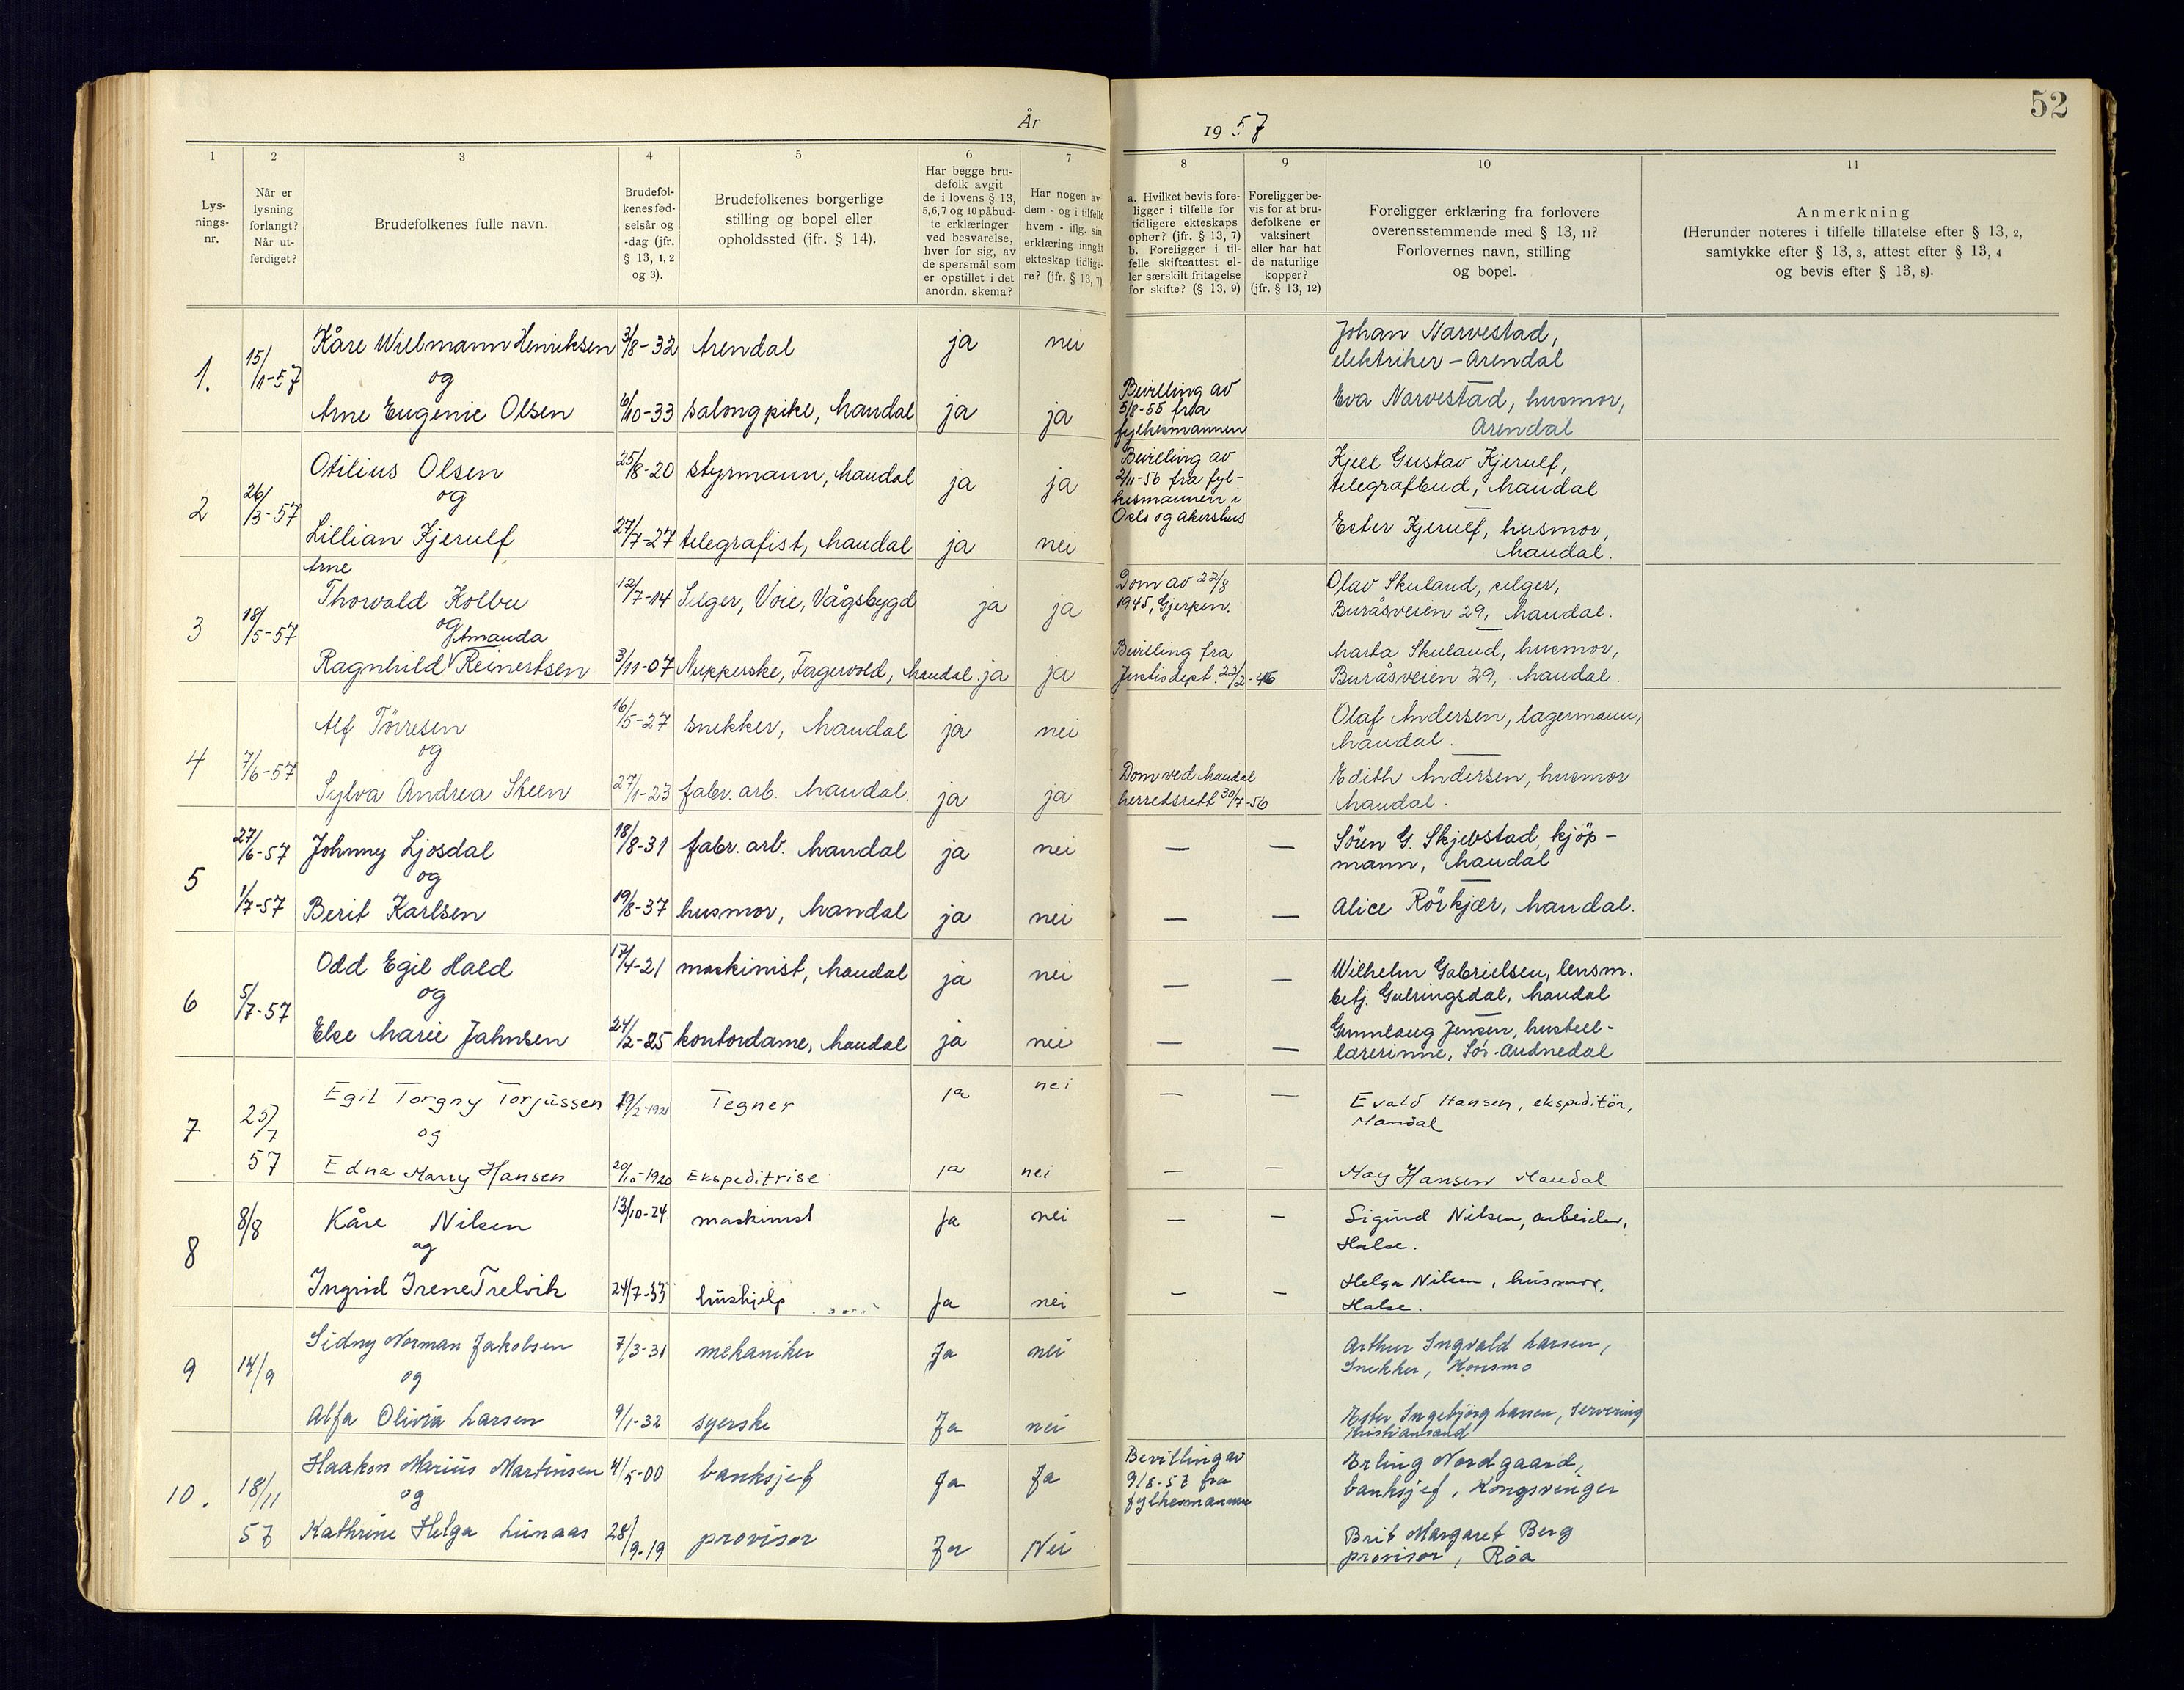 52
År 1957
1 2 3 4 5 6 7 8 9 10 11
Lys-
nings-
nr.
Når er
lysning
forlangt?
Når ut-
ferdiget?
Brudefolkenes fulle navn.
Brudefol-
kenes fød-
selsår og
-dag (jfr.
§ 13, 1, 2
og 3).
Brudefolkenes borgerlige
stilling og bopel eller
opholdssted (jfr. § 14).
Har begge bru-
defolk avgit
de i lovens § 13,
5, 6, 7 og 10 påbud-
te erklæringer
ved besvarelse,
hver for sig, av
de spørsmål som
er opstillet i det
anordn. skema?
Har nogen av
dem - og i tilfelle
hvem - iflg. sin
erklæring inngått
ekteskap tidlige-
re? (jfr. § 13, 7).
a. Hvilket bevis fore-
ligger i tilfelle for
tidligere ekteskaps
ophør? (jfr. § 13, 7)
b. Foreligger i til-
felle skifteattest el-
ler særskilt fritagelse
for skifte? (§ 13, 9)
Foreligger be-
vis for at bru-
defolkene er
vaksinert
eller har hat
de naturlige
kopper?
(jfr. § 13, 12)
Foreligger erklæring fra forlovere
overensstemmende med § 13, 11?
Forlovernes navn, stilling
og bopel.
Anmerkning
(Herunder noteres i tilfelle tillatelse efter § 13, 2,
samtykke efter § 13, 3, attest efter § 13, 4
og bevis efter § 13, 8).
1. 15/1-57
Kåre Wielmann Henriksen 3/8-32 Arendal ja nei
og
Arne Eugenie Olsen 6/10-33 salongpike, Mandal ja ja
Bevilling av
5/8-55 fra
fylkesmannen
Johan Narvestad,
elektriker - Arendal
Eva Narvestad, husmor,
Arendal
2 26/3-57
Otilius Olsen 25/8-20 styrmann, Mandal ja ja
og
Lillian Kjerulf 27/7-27 telegrafist, Mandal ja nei
Bevilling av
2/11-56 fra fyl-
kesmannen i
Oslo og Akershus
Kjell Gustav Kjerulf,
telegrafbud, Mandal
Ester Kjerulf, husmor,
Mandal.
3 18/5-57
Arne
Thorvald Kolbu 12/7-14 Selger, Voie, Vågsbygd ja ja
og
Amanda
Ragnhild Reinertsen 3/11-07 Nupperske, Fagervold, Mandal. ja ja
Dom av 22/8
1945, Gjerpen.
Bevilling fra
Justisdept. 22/2-46
Olav Skuland, selger,
Buråsveien 29, Mandal.
Marta Skuland, husmor,
Buråsveien 29, Mandal.
4 7/6-57
Alf Törresen 16/5-27 snekker, Mandal ja nei
og
Sylva Andrea Steen 27/1-23 fabr. arb. Mandal. ja ja
Dom ved Mandal
herredsrett 30/7-56
Olaf Andersen, lagermann,
Mandal.
Edith Andersen, husmor
Mandal.
5 27/6-57
1/7-57
Johnny Ljosdal 18/8-31 fabr. arb. Mandal ja nei — —
og
Berit Karlsen 19/8-37 husmor, Mandal ja nei — —
Sören G. Skjebstad, kjöp-
mann, Mandal
Alice Rörkjær, Mandal.
6 5/7-57
Odd Egil Hald 17/4-21 maskinist, Mandal ja nei — —
og
Else Marie Jahnsen 24/2-25 kontordame, Mandal ja nei — —
Wilhelm Gabrielsen, lensm.
betj. Gulringsdal, Mandal
Gunnlaug Jensen, hustell-
lærerinne, Sör-Audnedal
7 25/7 57
Egil Torgny Torjussen 19/2-1921 Tegner ja nei — —
og
Edna Marry Hansen 20/10-1920 Ekspeditrise ja nei — —
Evald Hansen, ekspeditör,
Mandal
May Hansen Mandal
8 8/8
Kåre Nilsen 13/10-24 maskinist ja nei — —
og
Ingrid Irene Trelvik 24/7-33 hushjelp ja nei — —
Sigurd Nilsen, arbeider,
Halse.
Helga Nilsen, husmor,
Halse.
9 14/9
Sidny Norman Jakobsen 7/3-31 mekaniker Ja nei
og
Alfa Olivia Larsen 9/1-32 syerske Ja nei
Arthur Ingvald Larsen,
Snekker, Konsmo
Ester Ingebjörg Larsen, Servering
Kristiansand
10. 18/11 57
Haakon Marius Martinsen 4/5-00 banksjef Ja Ja
og
Kathrine Helga Lunaas 28/9-19 provisor Ja Nei
Bevilling av
9/8-57 fra
fylkesmannen
Erling Nordgaard,
banksjef, Kongsvinger
Brit Margaret Berg
provisor, Roa